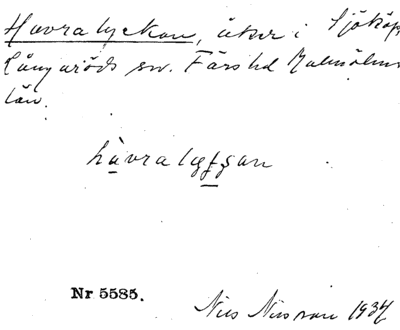 Havralyckan, åker i Sjököp
Långaröds sn. Färs hd Malmöhus
län.
håvralyfgan
Nr 5585.
Nils Nilsson 1937